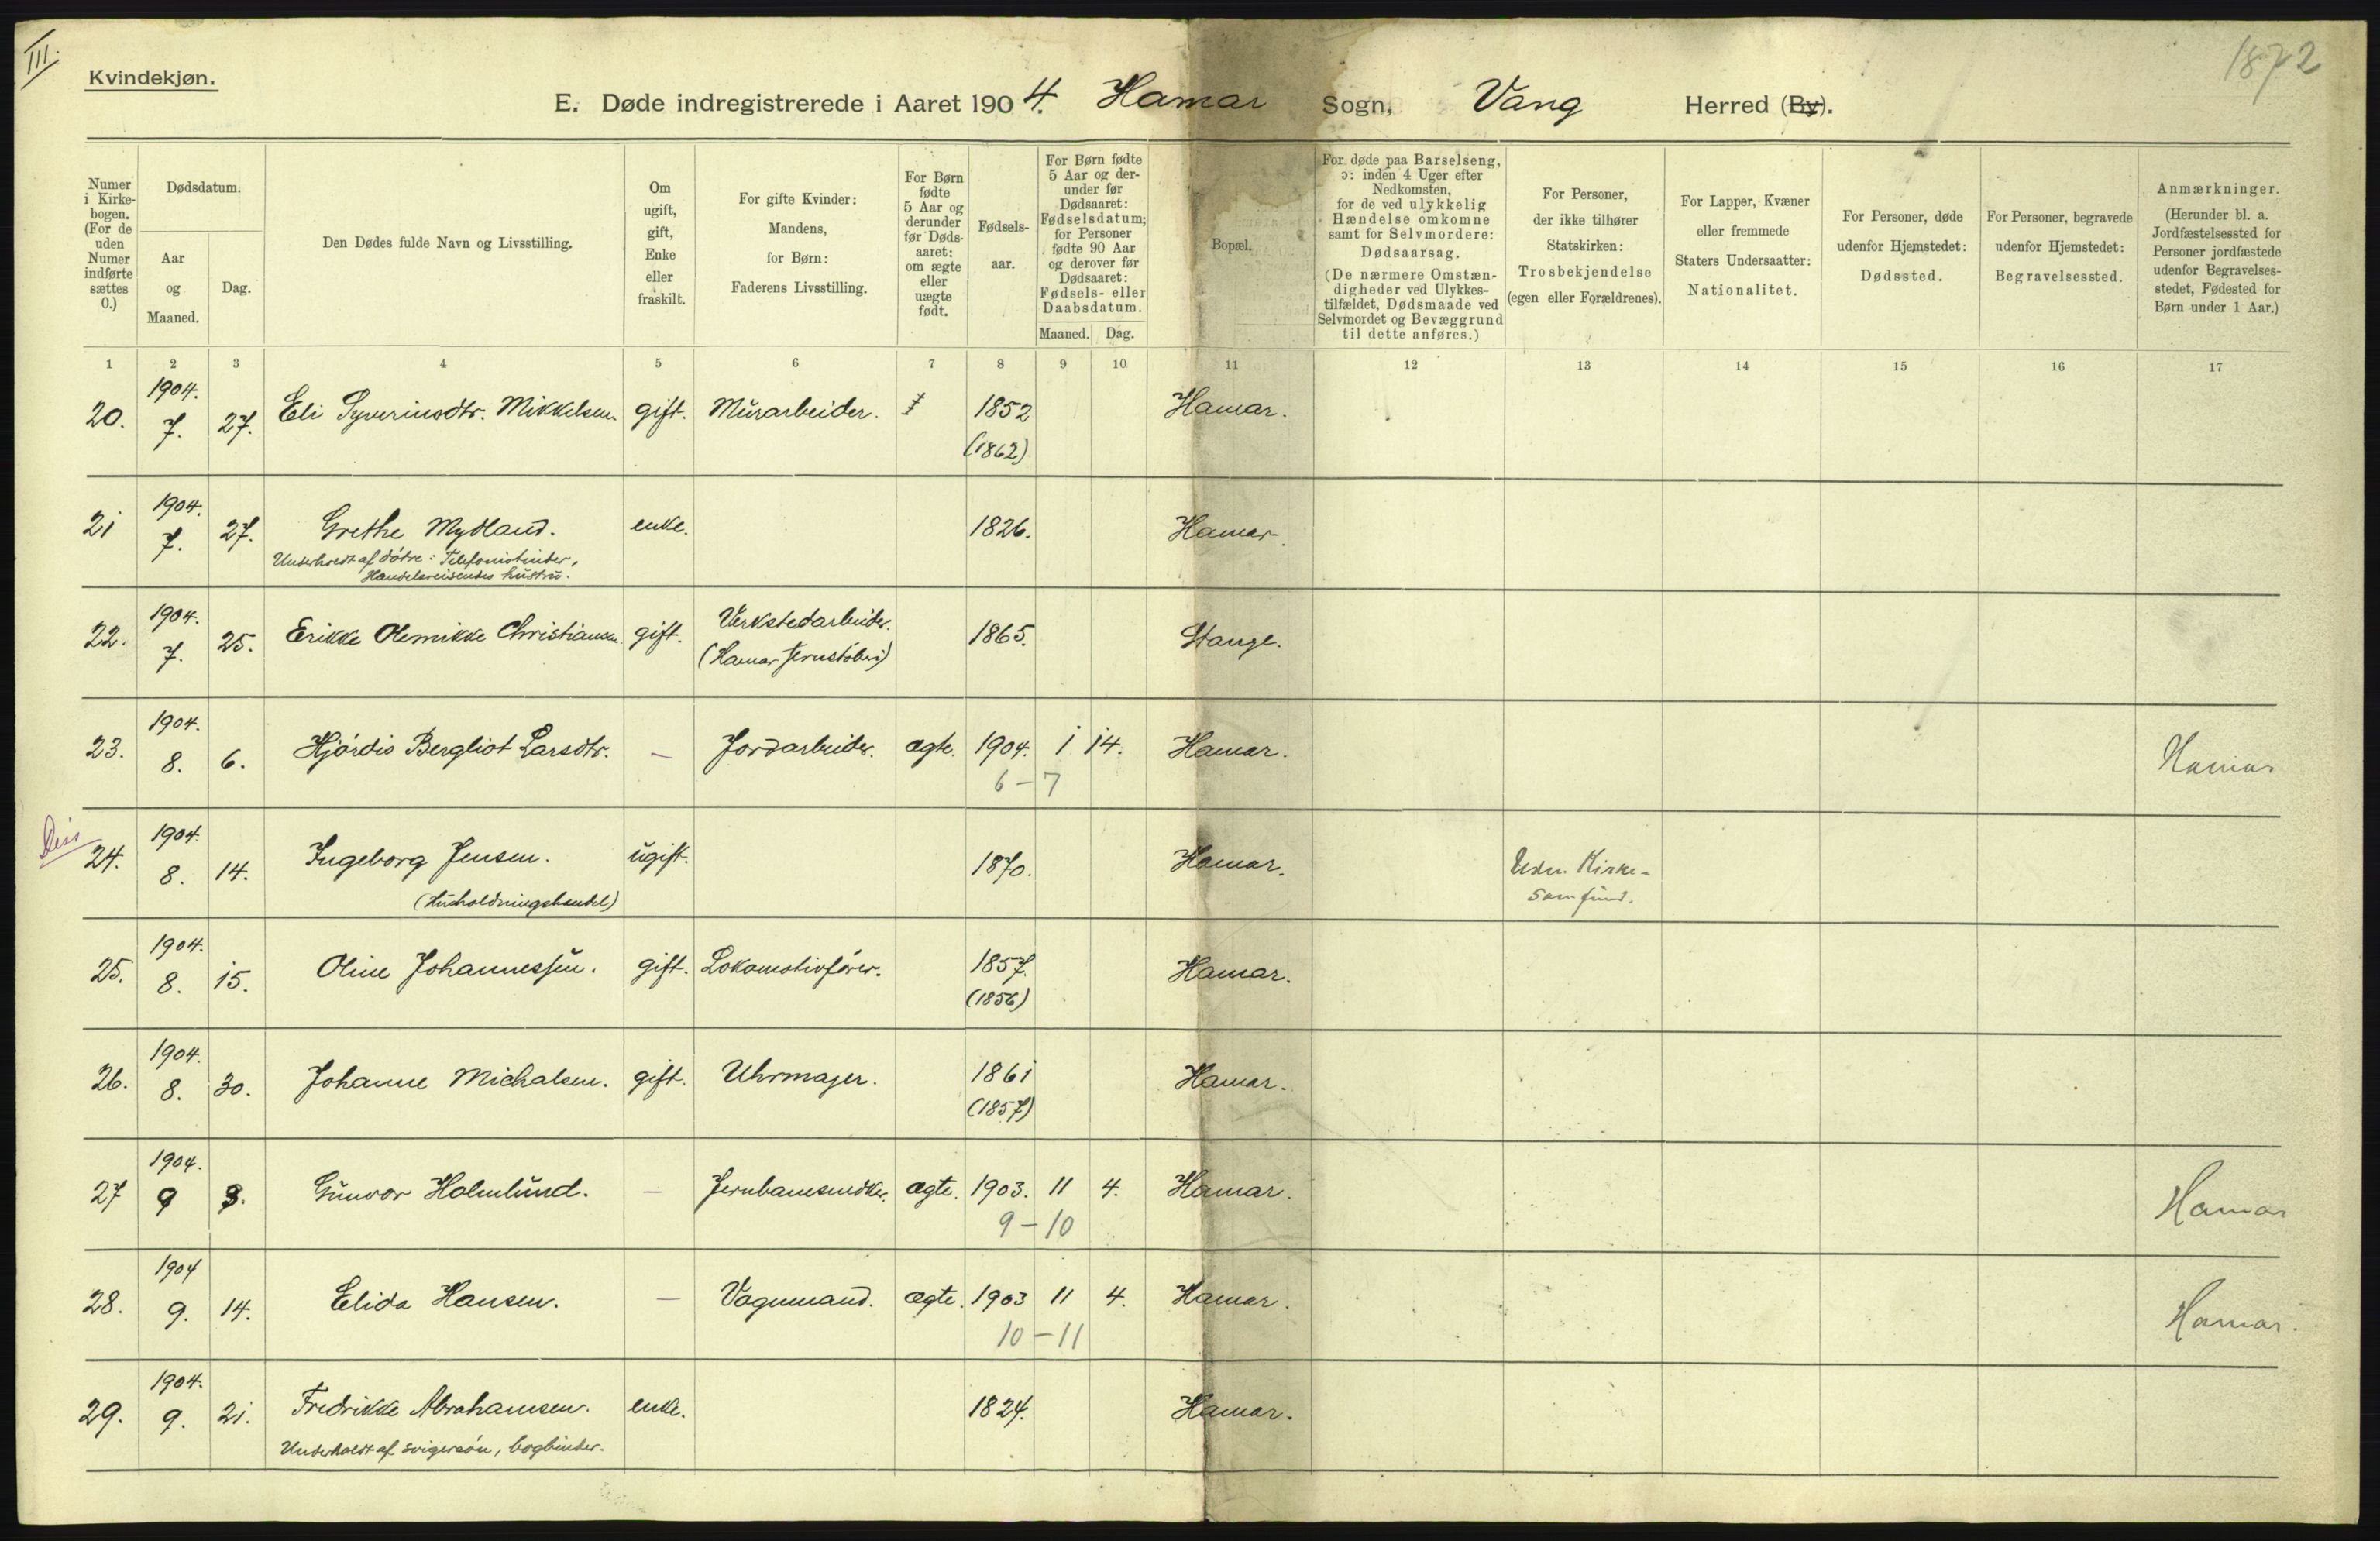 III.
1872
Kvindekjøn.
E. Døde indregistrerede i Aaret 1904. Hamar Sogn, Vang Herred (By).
Numer i Kirkebogen. (For de uden Numer indførte sættes 0.)
Dødsdatum.
Aar og Maaned.
Dag.
Den Dødes fulde Navn og Livsstilling.
Om ugift, gift, Enke eller fraskilt.
For gifte Kvinder: Mandens, for Børn: Faderens Livsstilling.
For Børn fødte 5 Aar og derunder før Dødsaaret: om ægte eller uægte født.
Fødselsaar.
For Børn fødte 5 Aar og derunder før Dødsaaret: Fødselsdatum; for Personer fødte 90 Aar og derover før Dødsaaret: Fødsels- eller Daabsdatum.
Maaned. Dag.
Bopæl.
For døde paa Barselseng, ɔ: inden 4 Uger efter Nedkomsten, for de ved ulykkelig Hændelse omkomne samt for Selvmordere: Dødsaarsag. (De nærmere Omstændigheder ved Ulykkestilfældet, Dødsmaade ved Selvmordet og Bevæggrund til dette anføres.)
For Personer, der ikke tilhører Statskirken: Trosbekjendelse (egen eller Forældrenes).
For Lapper, Kvæner eller fremmede Staters Undersaatter: Nationalitet.
For Personer, døde udenfor Hjemstedet: Dødssted.
For Personer, begravede udenfor Hjemstedet: Begravelsessted.
Anmærkninger. (Herunder bl. a. Jordfæstelsessted for Personer jordfæstede udenfor Begravelsesstedet, Fødested for Børn under 1 Aar.)
1 2 3 4 5 6 7 8 9 10 11 12 13 14 15 16 17
20. 1904. 7. 27. Eli Syverinsdtr. Mikkelsen. gift. Murarbeider. 1852 (1862) Hamar.
21 1904. 7. 27. Grethe Mydland. enke. 1826. Hamar.
Underholdt af døtre: Telefonistinder,
Handelsreisendes hustru.
22. 1904. 7. 25. Erikke Olemikke Christiansen. gift. Verkstedarbeider. (Hamar Jernstøberi) 1865. Stange.
23. 1904. 8. 6. Hjørdis Bergliot Larsdtr. — Jordarbeider. ægte. 1904. 1 14. Hamar. Hamar
6 – 7
Diss
24. 1904. 8. 14. Ingeborg Jensen. ugift. 1870. Hamar. Uden. Kirke-
(Husholdningshandel) samfund.
25. 1904. 8. 15. Oline Johannessen. gift. Lokomotivfører. 1857. (1856) Hamar.
26. 1904. 8. 30. Johanne Michalsen. gift. Uhrmager. 1861 (1857) Hamar.
27 1904. 9 3. Gunvor Holmlund. — Jernbanesnedker. ægte. 1903. 11 4. Hamar. Hamar
9 – 10
28. 1904 9. 14. Elida Hansen. — Vognmand. ægte. 1903 11 4. Hamar. Hamar.
10 – 11
29. 1904. 9. 21. Fredrikke Abrahamsen. enke. 1824. Hamar.
Underholdt af svigersøn, bogbinder.